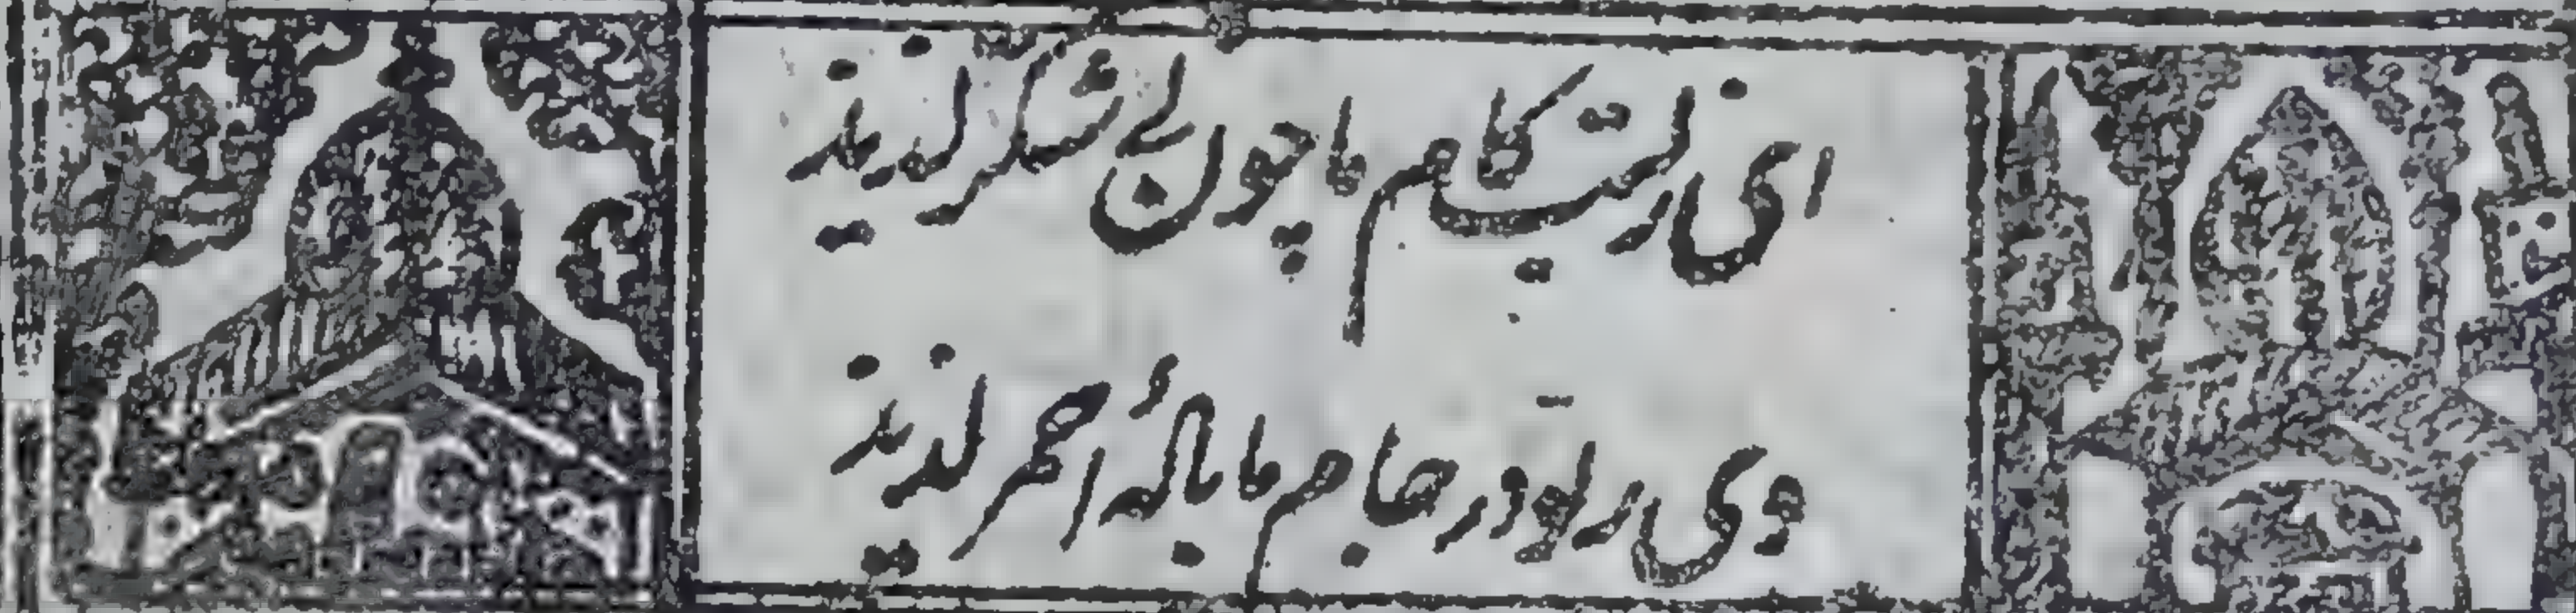 ای ز لبت کام ما چون نے شکر لذیذ
وی ز تو در جام ما بادۂ احمر لذیذ